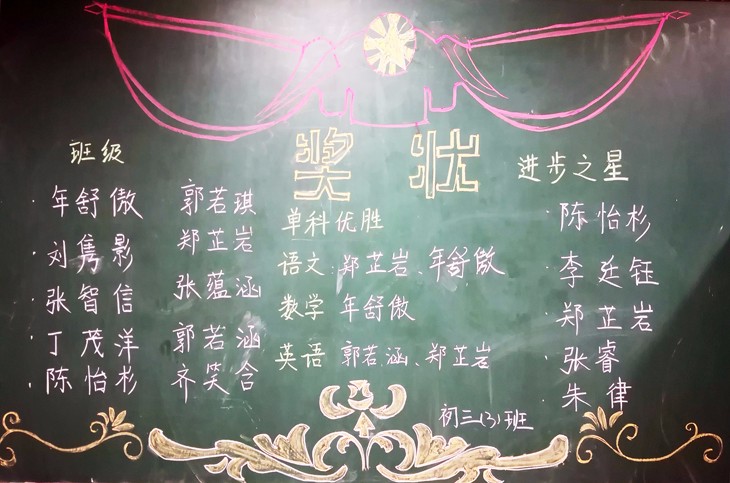 奖状
班级
年舒傲 郭若琪
刘隽影 郑芷岩
张智信 张蕴涵
丁茂洋 郭若涵
陈怡杉 齐笑含
单科优胜
语文 郑芷岩、年舒傲
数学 年舒傲
英语 郭若涵、郑芷岩
进步之星
陈怡杉
李廷钰
郑芷岩
张睿
朱律
初三(3)班